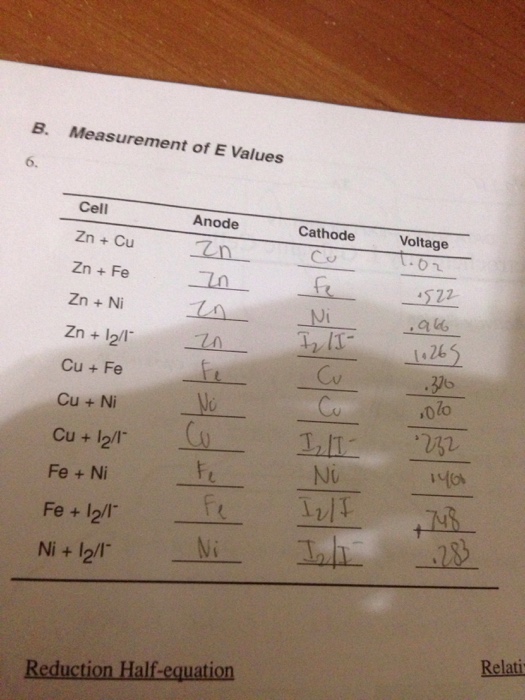 B. Measurement of E Values
6.
Cell Anode Cathode Voltage
Zn + Cu Zn Cu 1.02
Zn + Fe Zn Fe .522
Zn + Ni Zn Ni .966
Zn + I₂/I⁻ Zn I₂/I⁻ 1.265
Cu + Fe Fe Cu
Cu + Ni Ni Cu .020
Cu + I₂/I⁻ Cu I₂/I⁻ .232
Fe + Ni Fe Ni
Fe + I₂/I⁻ Fe I₂/I .748
Ni + I₂/I⁻ Ni I₂/I⁻ .283
Reduction Half-equation